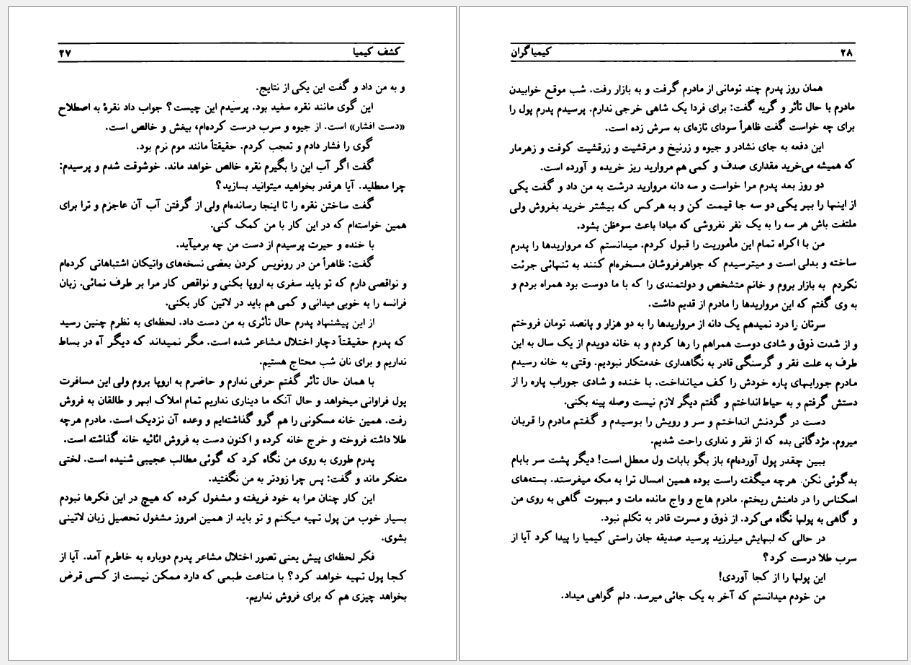 کشف کیمیا ۲۷
و به من داد و گفت این یکی از نتایج.
این گوی مانند نقره سفید بود. پرسیدم این چیست؟ جواب داد نقرهٔ به اصطلاح
«دست افشار» است. از جیوه و سرب درست کرده‌ام، بیغش و خالص است.
گوی را فشار دادم و تعجب کردم. حقیقتاً مانند موم نرم بود.
گفت اگر آب این را بگیرم نقره خالص خواهد ماند. خوشوقت شدم و پرسیدم:
چرا معطلید. آیا هرقدر بخواهید میتوانید بسازید؟
گفت ساختن نقره را تا اینجا رسانده‌ام ولی از گرفتن آب آن عاجزم و ترا برای
همین خواسته‌ام که در این کار با من کمک کنی.
با خنده و حیرت پرسیدم از دست من چه برمیآید.
گفت: ظاهراً من در رونویس کردن بعضی نسخه‌های واتیکان اشتباهاتی کرده‌ام
و نواقصی دارم که تو باید سفری به اروپا بکنی و نواقص کار مرا بر طرف نمائی. زبان
فرانسه را به خوبی میدانی و کمی هم باید در لاتین کار بکنی.
از این پیشنهاد پدرم حال تأثری به من دست داد. لحظه‌ای به نظرم چنین رسید
که پدرم حقیقتاً دچار اختلال مشاعر شده است. مگر نمیداند که دیگر آه در بساط
نداریم و برای نان شب محتاج هستیم.
با همان حال تأثر گفتم حرفی ندارم و حاضرم به اروپا بروم ولی این مسافرت
پول فراوانی میخواهد و حال آنکه ما دیناری نداریم تمام املاک ابهر و طالقان به فروش
رفت. همین خانه مسکونی را هم گرو گذاشته‌ایم و وعده آن نزدیک است. مادرم هرچه
طلا داشته فروخته و خرج خانه کرده و اکنون دست به فروش اثاثیه خانه گذاشته است.
پدرم طوری به روی من نگاه کرد که گوئی مطالب عجیبی شنیده است. لختی
متفکر ماند و گفت: پس چرا زودتر به من نگفتید.
این کار چنان مرا به خود فریفته و مشغول کرده که هیچ در این فکرها نبودم
بسیار خوب من پول تهیه میکنم و تو باید از همین امروز مشغول تحصیل زبان لاتینی
بشوی.
فکر لحظه‌ای پیش یعنی تصور اختلال مشاعر پدرم دوباره به خاطرم آمد. آیا از
کجا پول تهیه خواهد کرد؟ با مناعت طبعی که دارد ممکن نیست از کسی قرض
بخواهد چیزی هم که برای فروش نداریم.
۲۸ کیمیاگران
همان روز پدرم چند تومانی از مادرم گرفت و به بازار رفت. شب موقع خوابیدن
مادرم با حال تأثر و گریه گفت: برای فردا یک شاهی خرجی ندارم. پرسیدم پدرم پول را
برای چه خواست گفت ظاهراً سودای تازه‌ای به سرش زده است.
این دفعه به جای نشادر و جیوه و زرنیخ و مرقشیت و زرقشیت کوفت و زهرمار
که همیشه می‌خرید مقداری صدف و کمی هم مروارید ریز خریده و آورده است.
دو روز بعد پدرم مرا خواست و سه دانه مروارید درشت به من داد و گفت یکی
از اینها را ببر یکی دو سه جا قیمت کن و به هرکس که بیشتر خرید بفروش ولی
ملتفت باش هر سه را به یک نفر نفروشی که مبادا باعث سوءظن بشود.
من با اکراه تمام این مأموریت را قبول کردم. میدانستم که مرواریدها را پدرم
ساخته و بدلی است و میترسیدم که جواهرفروشان مسخره‌ام کنند به تنهائی جرئت
نکردم به بازار بروم و خانم متشخص و دولتمندی را که با ما دوست بود همراه بردم و
به وی گفتم که این مرواریدها را مادرم از قدیم داشت.
سرتان را درد نمیدهم یک دانه از مرواریدها را به دو هزار و پانصد تومان فروختم
و از شدت ذوق و شادی دوست همراهم را رها کردم و به خانه دویدم از یک سال به این
طرف به علت فقر و گرسنگی قادر به نگاهداری خدمتکار نبودیم. وقتی به خانه رسیدم
مادرم جورابهای پاره خودش را کف میانداخت. با خنده و شادی جوراب پاره را از
دستش گرفتم و به حیاط انداختم و گفتم دیگر لازم نیست وصله پینه بکنی.
دست در گردنش انداختم و سر و رویش را بوسیدم و گفتم مادرم را قربان
میروم. مژدگانی بده که از فقر و نداری راحت شدیم.
ببین چقدر پول آورده‌ام، باز بگو بابات ول معطل است! دیگر پشت سر بابام
بدگوئی نکن. هرچه میگفته راست بوده همین امسال ترا به مکه میفرستد. بسته‌های
اسکناس را در دامنش ریختم. مادرم هاج و واج مانده مات و مبهوت گاهی به روی من
و گاهی به پولها نگاه می‌کرد. از ذوق و مسرت قادر به تکلم نبود.
در حالی که لبهایش میلرزید پرسید صدیقه جان راستی کیمیا را پیدا کرد آیا از
سرب طلا درست کرد؟
این پولها را از کجا آوردی!
من خودم میدانستم که آخر به یک جائی میرسد. دلم گواهی میداد.